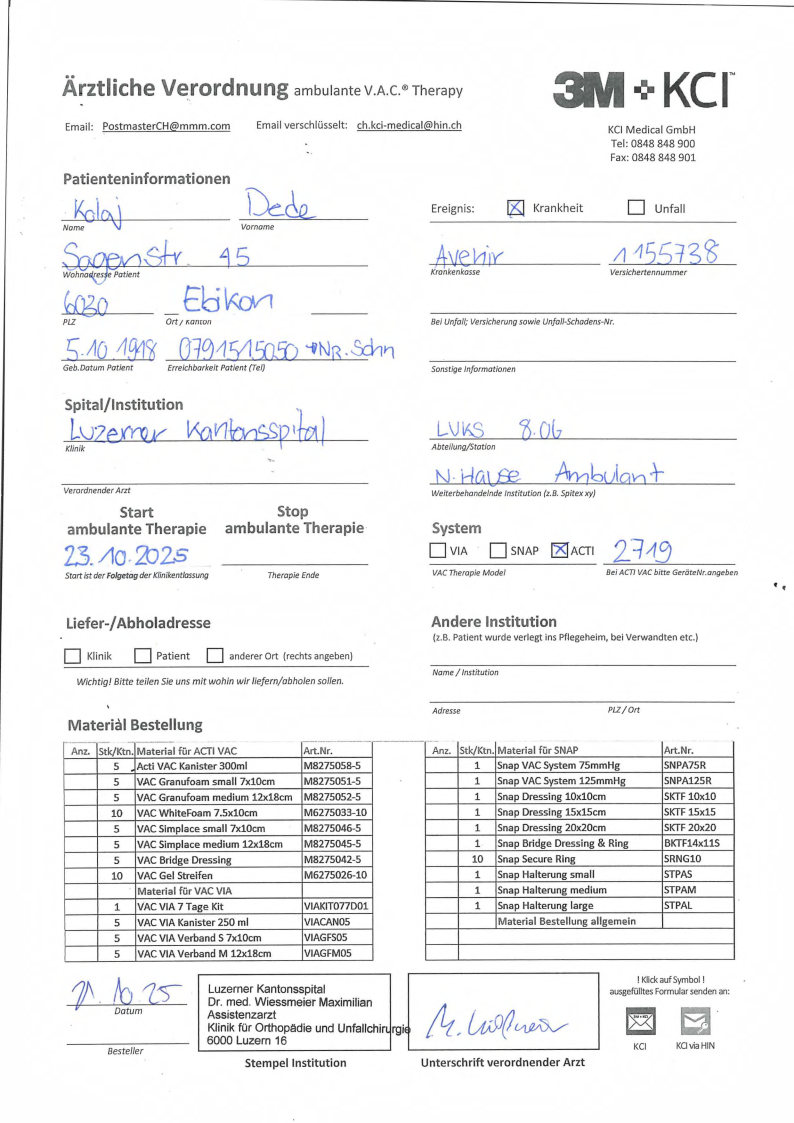 Ärztliche Verordnung ambulante V.A.C.® Therapy
3M KCI™
Email: PostmasterCH@mmm.com Email verschlüsselt: ch.kci-medical@hin.ch
KCI Medical GmbH
Tel: 0848 848 900
Fax: 0848 848 901
Patienteninformationen
Kolaj Dede
Name Vorname
Ereignis: Krankheit Unfall
Sagenstr. 45
Wohnadresse Patient
Avenir 1155738
Krankenkasse Versichertennummer
6030 Ebikon
PLZ Ort / Kanton
Bei Unfall; Versicherung sowie Unfall-Schadens-Nr.
5.10.1948 0791515050 Nr. Sohn
Geb.Datum Patient Erreichbarkeit Patient (Tel)
Sonstige Informationen
Spital/Institution
Luzerner Kantonsspital
Klinik
LUKS 8.06
Abteilung/Station
Verordnender Arzt
N. Hause Ambulant
Weiterbehandelnde Institution (z.B. Spitex xy)
Start
ambulante Therapie
Stop
ambulante Therapie
23.10.2025
Start ist der Folgetag der Klinikentlassung Therapie Ende
System
VIA SNAP ACTI 2719
VAC Therapie Model Bei ACTI VAC bitte GeräteNr.angeben
Liefer-/Abholadresse
Klinik Patient anderer Ort (rechts angeben)
Wichtig! Bitte teilen Sie uns mit wohin wir liefern/abholen sollen.
Andere Institution
(z.B. Patient wurde verlegt ins Pflegeheim, bei Verwandten etc.)
Name / Institution
Adresse PLZ / Ort
Material Bestellung
Anz. Stk/Ktn. Material für ACTI VAC Art.Nr.
5 Acti VAC Kanister 300ml M8275058-5
5 VAC Granufoam small 7x10cm M8275051-5
5 VAC Granufoam medium 12x18cm M8275052-5
10 VAC WhiteFoam 7.5x10cm M6275033-10
5 VAC Simplace small 7x10cm M8275046-5
5 VAC Simplace medium 12x18cm M8275045-5
5 VAC Bridge Dressing M8275042-5
10 VAC Gel Streifen M6275026-10
Material für VAC VIA
1 VAC VIA 7 Tage Kit VIAKIT077D01
5 VAC VIA Kanister 250 ml VIACAN05
5 VAC VIA Verband S 7x10cm VIAGFS05
5 VAC VIA Verband M 12x18cm VIAGFM05
Anz. Stk/Ktn. Material für SNAP Art.Nr.
1 Snap VAC System 75mmHg SNPA75R
1 Snap VAC System 125mmHg SNPA125R
1 Snap Dressing 10x10cm SKTF 10x10
1 Snap Dressing 15x15cm SKTF 15x15
1 Snap Dressing 20x20cm SKTF 20x20
1 Snap Bridge Dressing & Ring BKTF14x11S
10 Snap Secure Ring SRNG10
1 Snap Halterung small STPAS
1 Snap Halterung medium STPAM
1 Snap Halterung large STPAL
Material Bestellung allgemein
21.10.25
Datum
Besteller
Luzerner Kantonsspital
Dr. med. Wiessmeier Maximilian
Assistenzarzt
Klinik für Orthopädie und Unfallchirurgie
6000 Luzern 16
Stempel Institution
Unterschrift verordnender Arzt
! Klick auf Symbol !
ausgefülltes Formular senden an:
KCI KCI via HIN